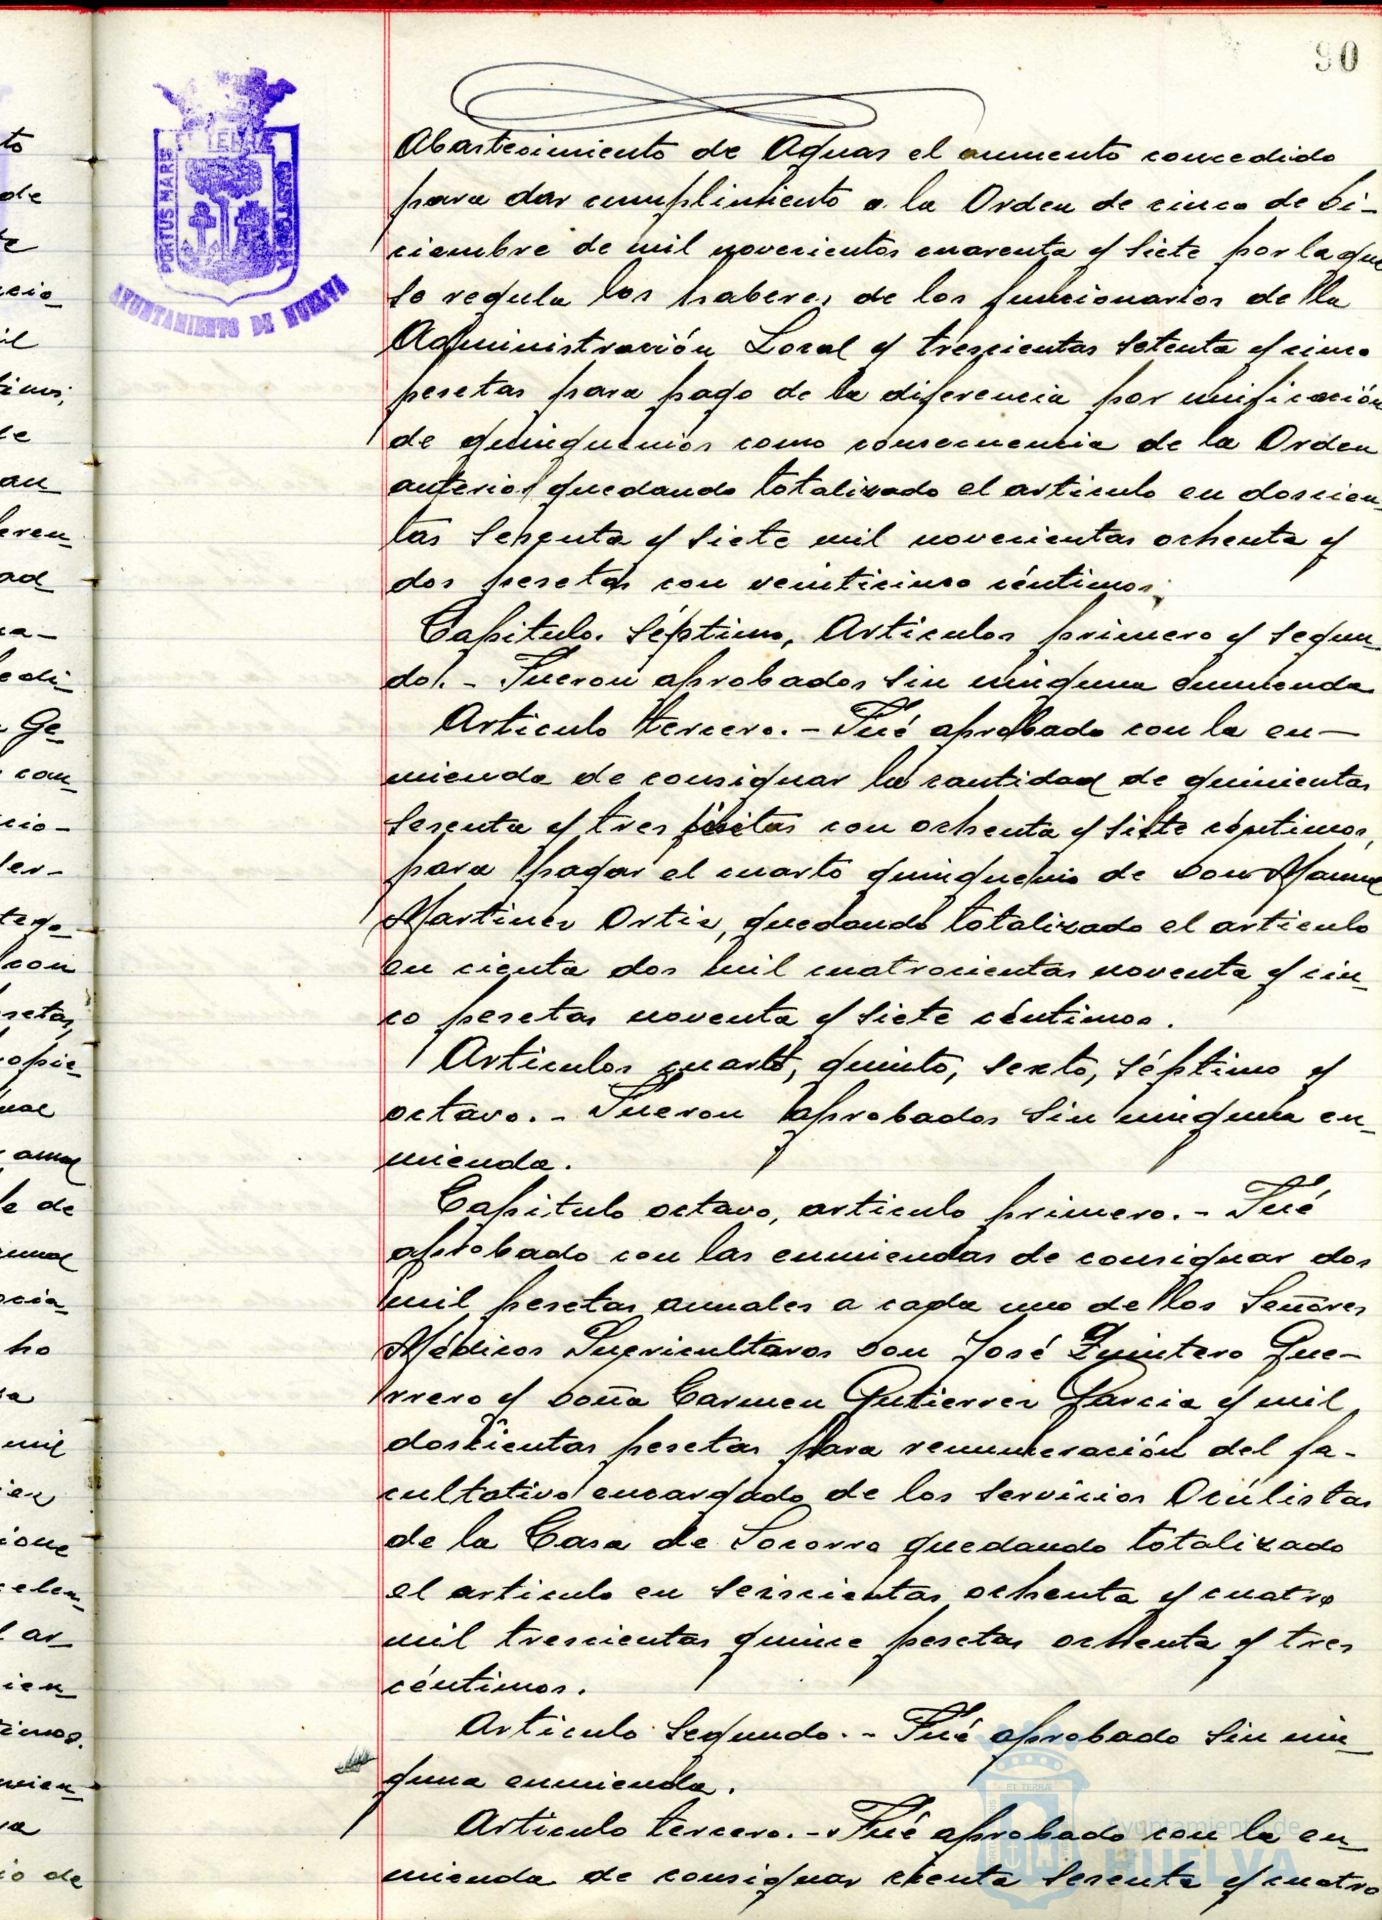 90
PORTUS MARIS ET TERRAE CUSTODIA
AYUNTAMIENTO DE HUELVA
Abastecimiento de Aguas el aumento concedido
para dar cumplimiento a la Orden de cinco de Di-
ciembre de mil novecientos cuarenta y siete por la que
se regula los haberes de los funcionarios de la
Administración Local y trescientas setenta y cinco
pesetas para pago de la diferencia por unificación
de quinquenios como consecuencia de la Orden
anterior quedando totalizado el articulo en doscien-
tas sesenta y siete mil novecientas ochenta y
dos pesetas con veinticinco céntimos.
Capitulo. Séptimo, Articulos primero y segun-
do. - Fueron aprobados sin ninguna enmienda
Articulo tercero. - Fué aprobado con la en-
mienda de consignar la cantidad de quinientas
sesenta y tres pesetas con ochenta y siete céntimos,
para pagar el cuarto quinquenio de Don Manuel
Martinez Ortiz, quedando totalizado el articulo
en cienta dos mil cuatrocientas noventa y cin-
co pesetas noventa y siete céntimos.
Articulos cuarto, quinto, sexto, séptimo y
octavo. - Fueron aprobados sin ninguna en-
mienda.
Capitulo octavo, articulo primero. - Fué
aprobado con las enmiendas de consignar dos
mil pesetas anuales a cada uno de los Señores
Médicos Puericultores Don José Quintero Gue-
rrero y Doña Carmen Gutierrez Garcia y mil
doscientas pesetas para remuneración del fa-
cultativo encargado de los servicios Oculistas
de la Casa de Socorro quedando totalizado
el articulo en seiscientas ochenta y cuatro
mil trescientas quince pesetas ochenta y tres
céntimos.
Articulo segundo. - Fué aprobado sin nin-
guna enmienda.
Articulo tercero. - Fué aprobado con la en-
mienda de consignar cienta sesenta y cuatro
Ayuntamiento de
HUELVA